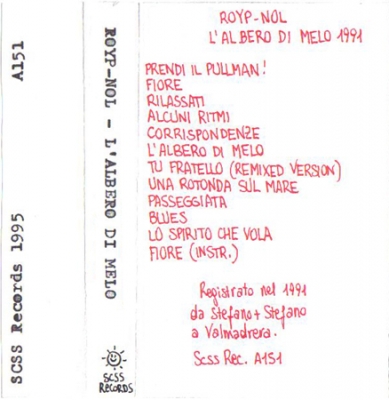 SCSS Records 1995 A151
ROYP-NOL - L'ALBERO DI MELO
SCSS
RECORDS
ROYP-NOL
L'ALBERO DI MELO 1991
PRENDI IL PULLMAN!
FIORE
RILASSATI
ALCUNI RITMI
CORRISPONDENZE
L'ALBERO DI MELO
TU FRATELLO (REMIXED VERSION)
UNA ROTONDA SUL MARE
PASSEGGIATA
BLUES
LO SPIRITO CHE VOLA
FIORE (INSTR.)
Registrato nel 1991
da Stefano + Stefano
a Valmadrera.
Scss Rec. A151